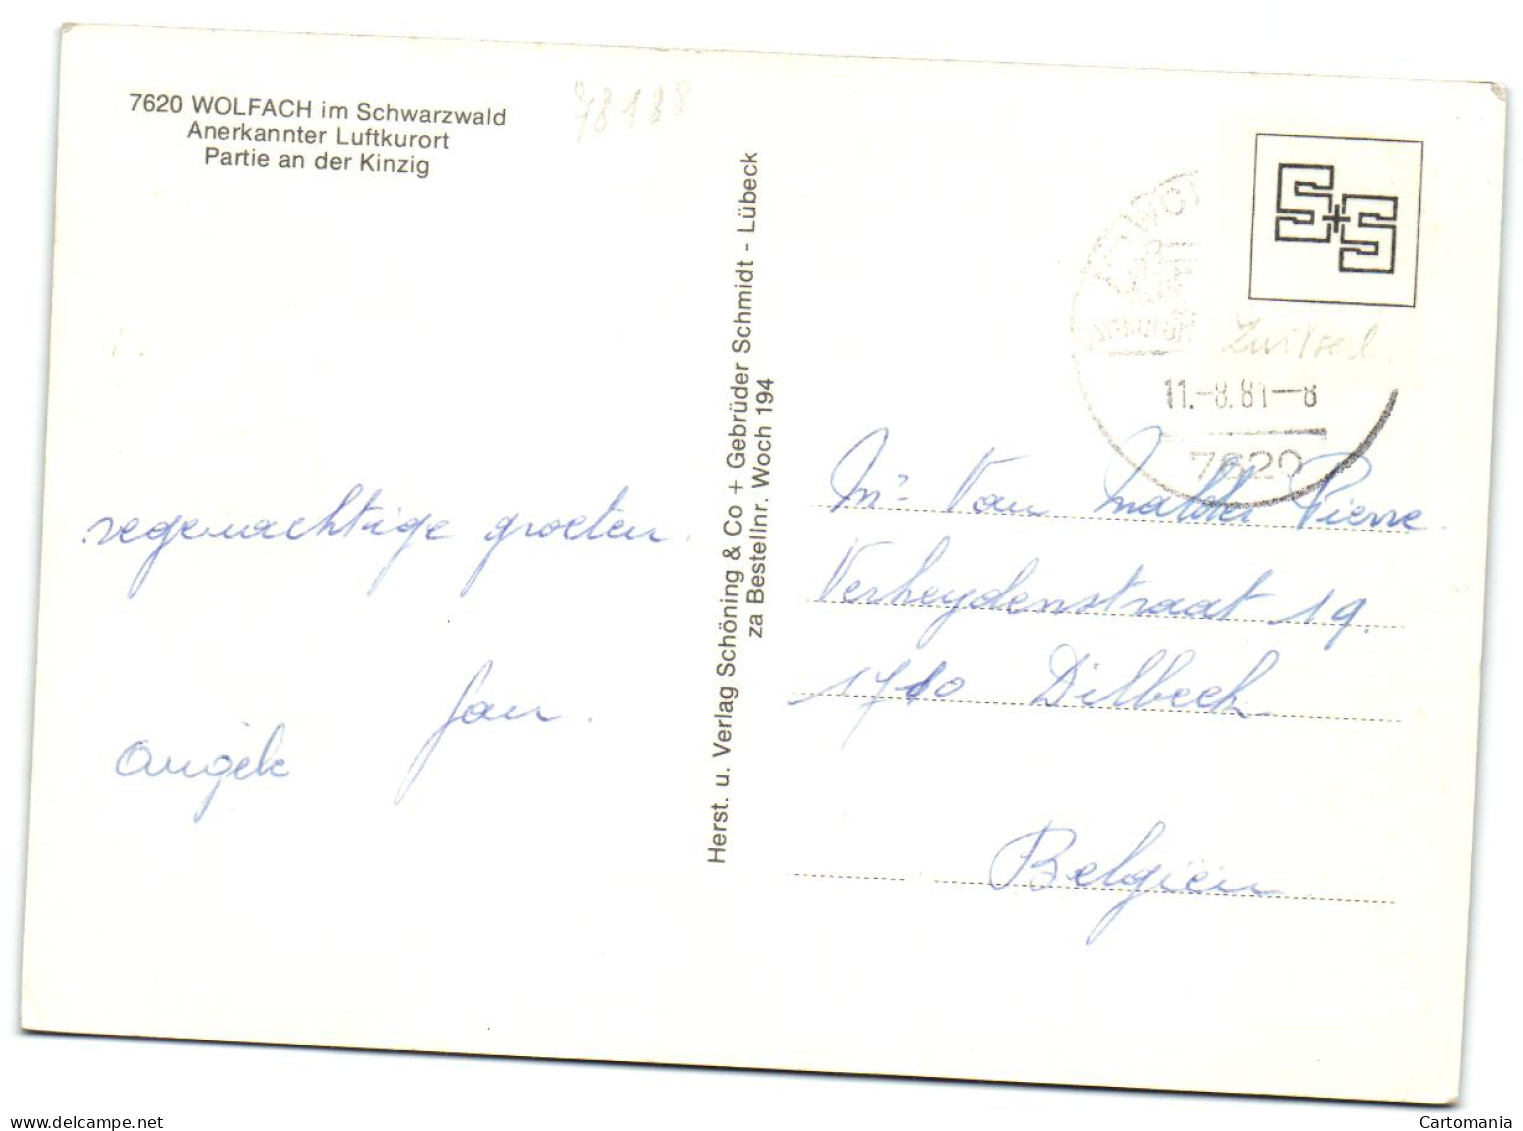 7620 WOLFACH im Schwarzwald
Anerkannter Luftkurort
Partie an der Kinzig
78188
regenachtige groeten.
Jan.
Angèle
Herst. u. Verlag Schöning & Co + Gebrüder Schmidt - Lübeck
za Bestellnr. Woch 194
S+S
11.-8.81-8
7620
Mr Van Malder Pierre.
Verheydenstraat 19.
1710 Dilbeek
Belgien
delcampe.net
Cartomania